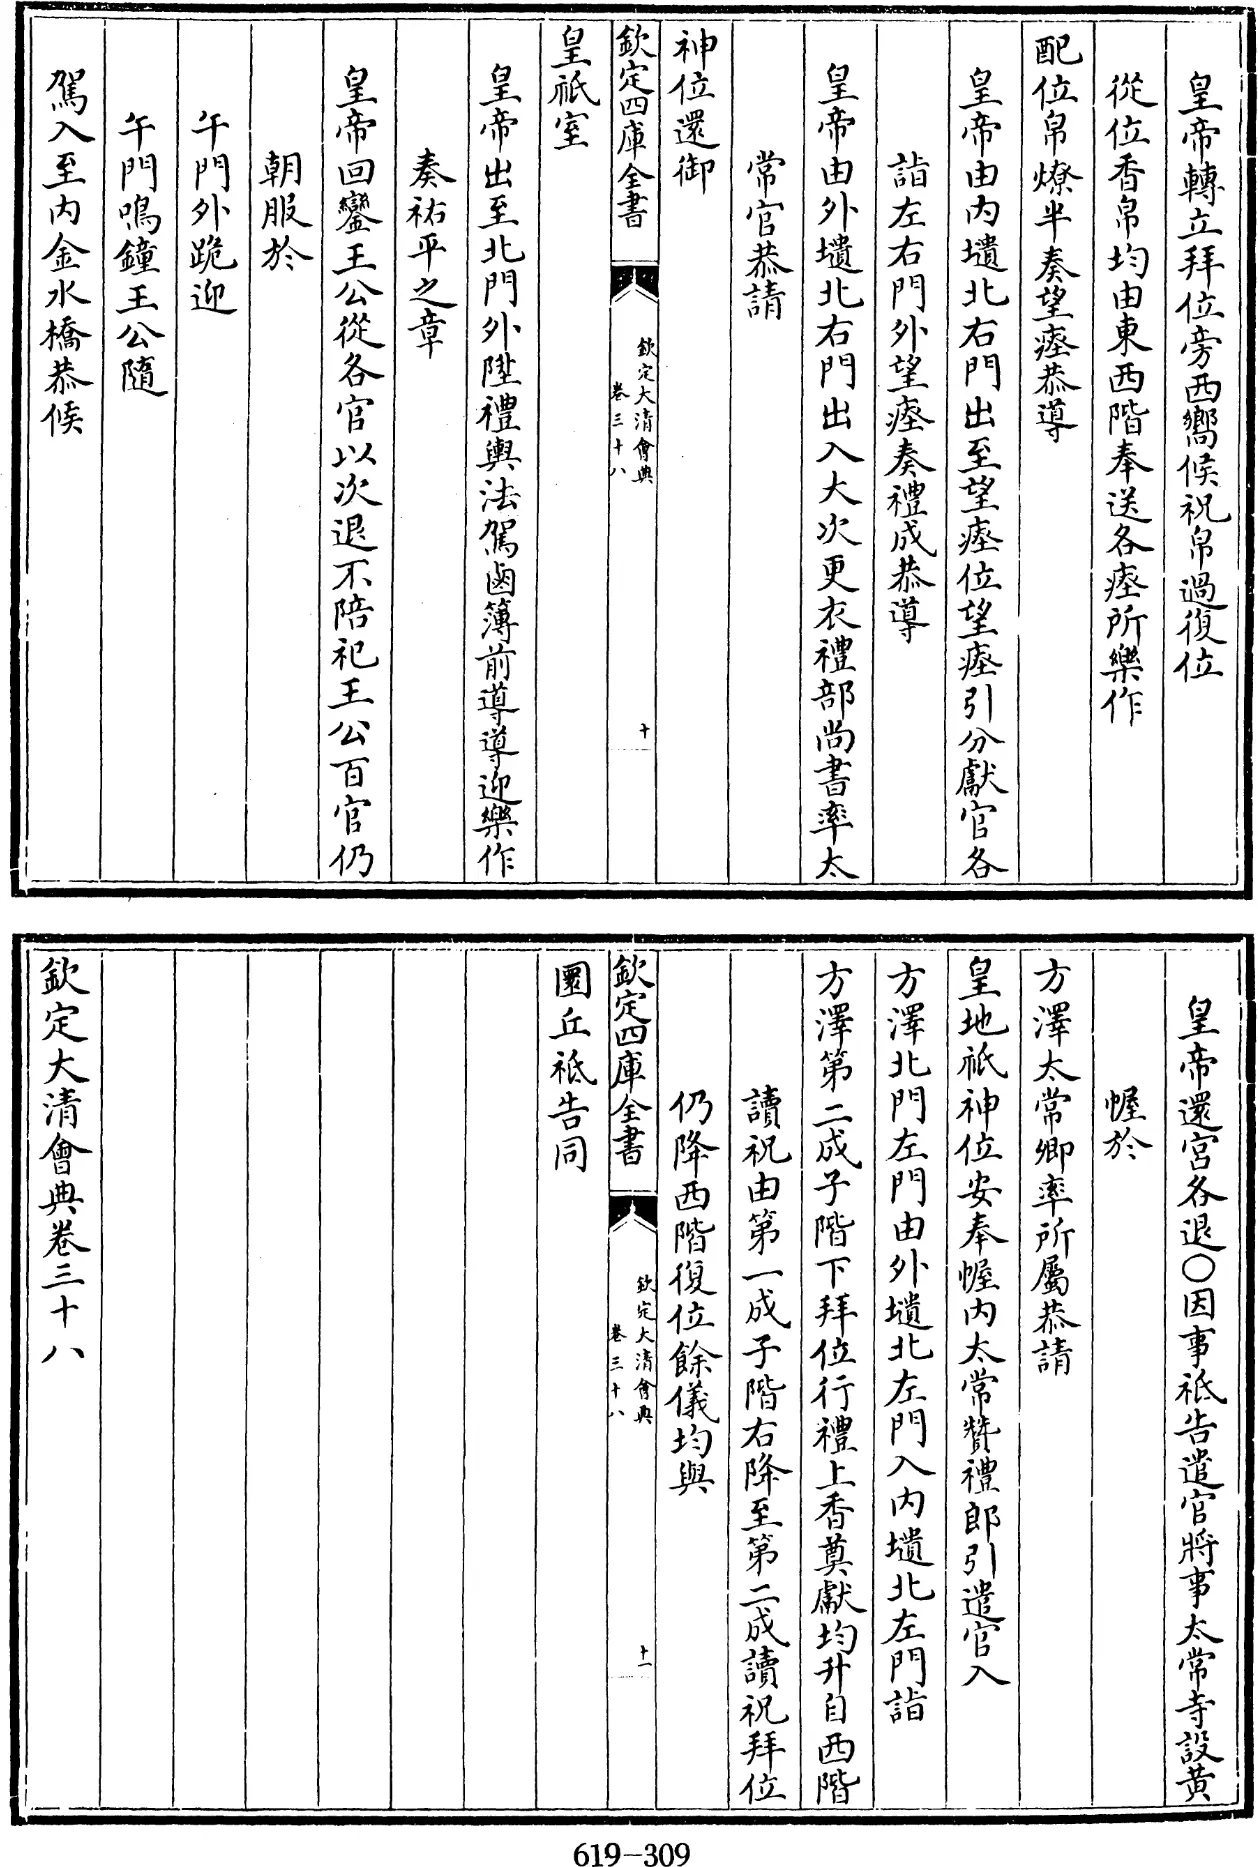 皇帝轉立拜位旁西嚮候祝帛過復位
從位香帛均由東西階奉送各瘞所樂作
配位帛燎半奏望瘞恭導
皇帝由內壝北右門出至望瘞位望瘞引分獻官各
詣左右門外望瘞奏禮成恭導
皇帝由外壝北右門出入大次更衣禮部尚書率太
常官恭請
神位還御
欽定四庫全書
欽定大清會典
卷三十八
十
皇祇室
皇帝出至北門外陞禮輿法駕鹵簿前導導迎樂作
奏祐平之章
皇帝回鑾王公從各官以次退不陪祀王公百官仍
朝服於
午門外跪迎
午門鳴鐘王公隨
駕入至內金水橋恭候
皇帝還宮各退○因事祗告遣官將事太常寺設黃
幄於
方澤太常卿率所屬恭請
皇地祇神位安奉幄內太常贊禮郎引遣官入
方澤北門左門由外壝北左門入內壝北左門詣
方澤第二成子階下拜位行禮上香奠獻均升自西階
讀祝由第一成子階右降至第二成讀祝拜位
仍降西階復位餘儀均與
欽定四庫全書
欽定大清會典
卷三十八
十一
圜丘祗告同
欽定大清會典卷三十八
619-309